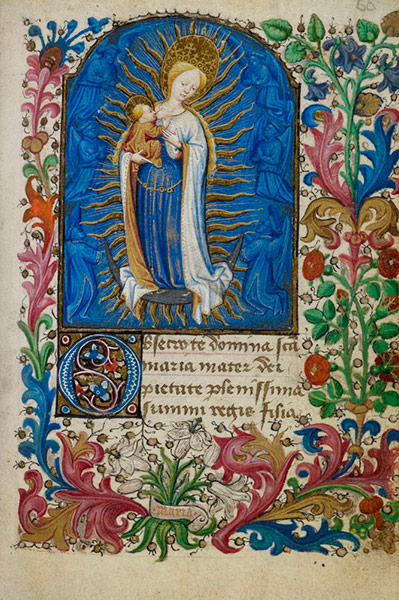 Obsecro te domina sca
maria mater dei
pietate plenissima
summi regis filia
maria